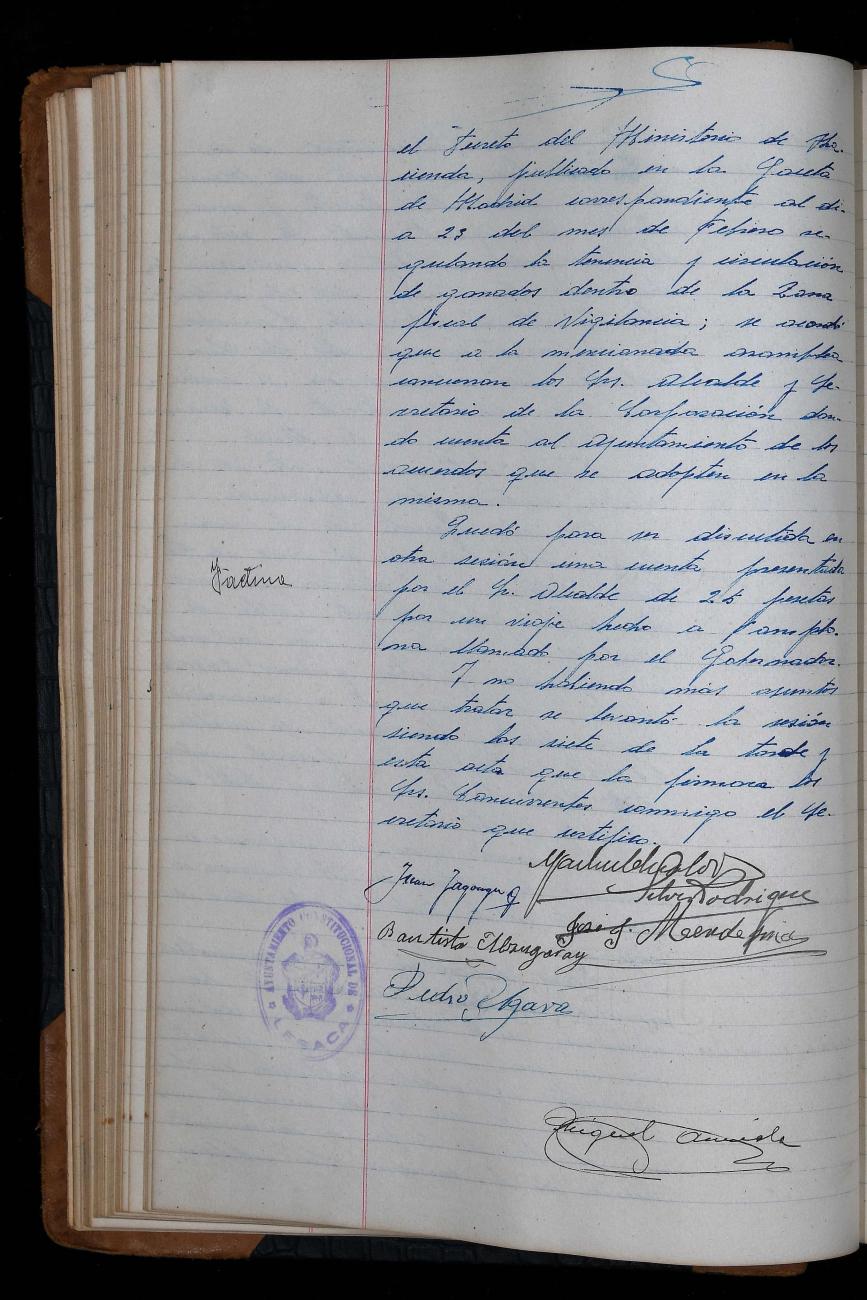 el Decreto del Ministerio de Ha-
cienda, publicado en la Gaceta
de Madrid correspondiente al di-
a 23 del mes de Febrero re-
gulando la tenencia y circulación
de ganados dentro de la Zona
fiscal de Vigilancia; se acordó
que a la mencionada asamblea
concurran los Srs. Alcalde y Se-
cretario de la Corporación dan-
do cuenta al Ayuntamiento de los
acuerdos que se adopten en la
misma.
Quedó para ser discutida en
otra sesión una cuenta presentada
por el Sr. Alcalde de 25 pesetas
por un viaje hecho a Pamplo-
na llamado por el Gobernador.
Factura
Y no habiendo más asuntos
que tratar se levantó la sesión
siendo las siete de la tarde y
esta acta que la firmara los
Srs. Concurrentes conmigo el Se-
cretario que certifico.
Juan
Silve Rodriguez
Bautista
José J. Mendi
Pedro
AYUNTAMIENTO CONSTITUCIONAL DE
LESACA
Miguel